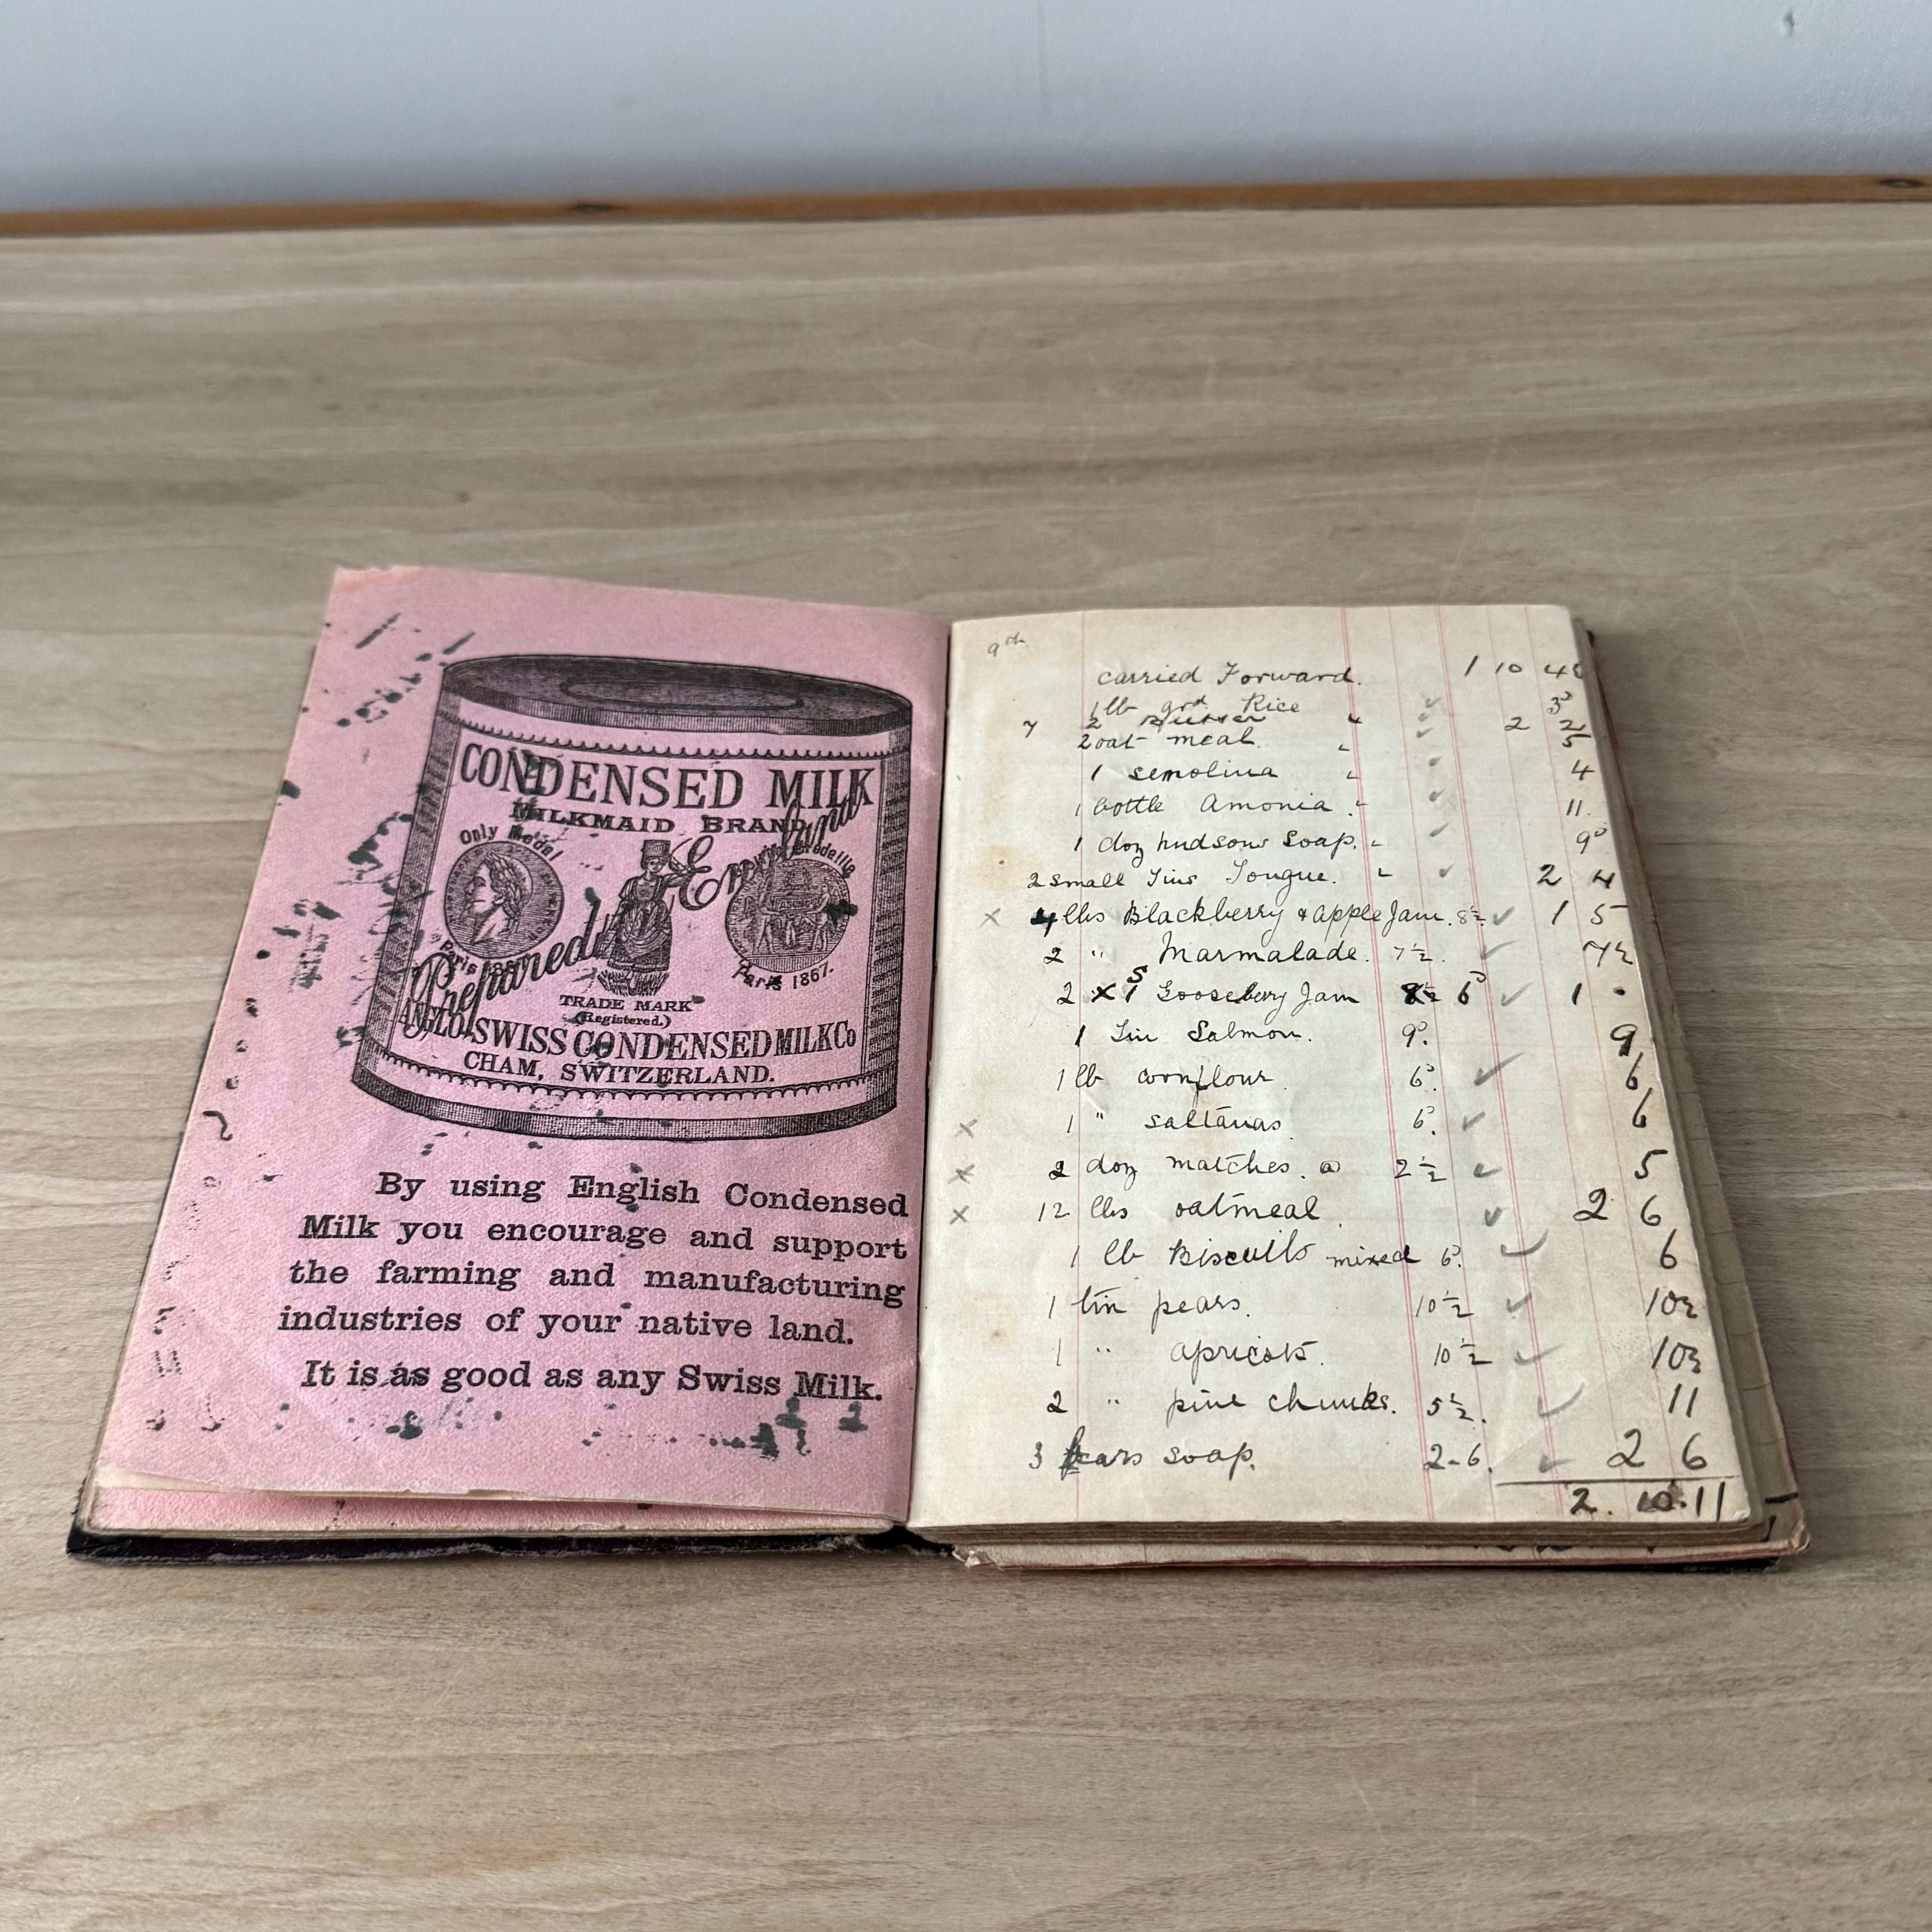 CONDENSED MILK
MILKMAID BRAND
Only Medal
Paris 1867.
Prepared England
TRADE MARK
(Registered.)
ANGLO-SWISS CONDENSED MILK Co
CHAM, SWITZERLAND.
By using English Condensed
Milk you encourage and support
the farming and manufacturing
industries of your native land.
It is as good as any Swiss Milk.
9th
carried Forward. 1 10 4½
1 lb grd Rice ✓ 3
7 2 Butter " ✓ 2 2
2 oat meal. " ✓ 5
1 semolina " ✓ 4
1 bottle Amonia. " ✓ 11.
1 doz hudsons soap. " ✓ 9
2 small Tins Tongue. " ✓ 2 4
x 4 lbs Blackberry & apple Jam. 8½ ✓ 1 5
2 " Marmalade. 7½. ✓ 7½
2 x 1 S Gooseberry Jam 6 ✓ 1 .
1 Tin Salmon. 9. 9
1 lb cornflour 6. ✓ 6
x 1 " saltanas 6. ✓ 6
x 2 doz matches. @ 2½ ✓ 5
x 12 lbs oatmeal. ✓ 2 6
1 lb Biscuits mixed 6. ✓ 6
1 tin pears. 10½ ✓ 10½
1 " apricots. 10½ ✓ 10½
2 " pine chunks. 5½. ✓ 11
3 bars soap. 2-6. ✓ 2 6
2. 10.11